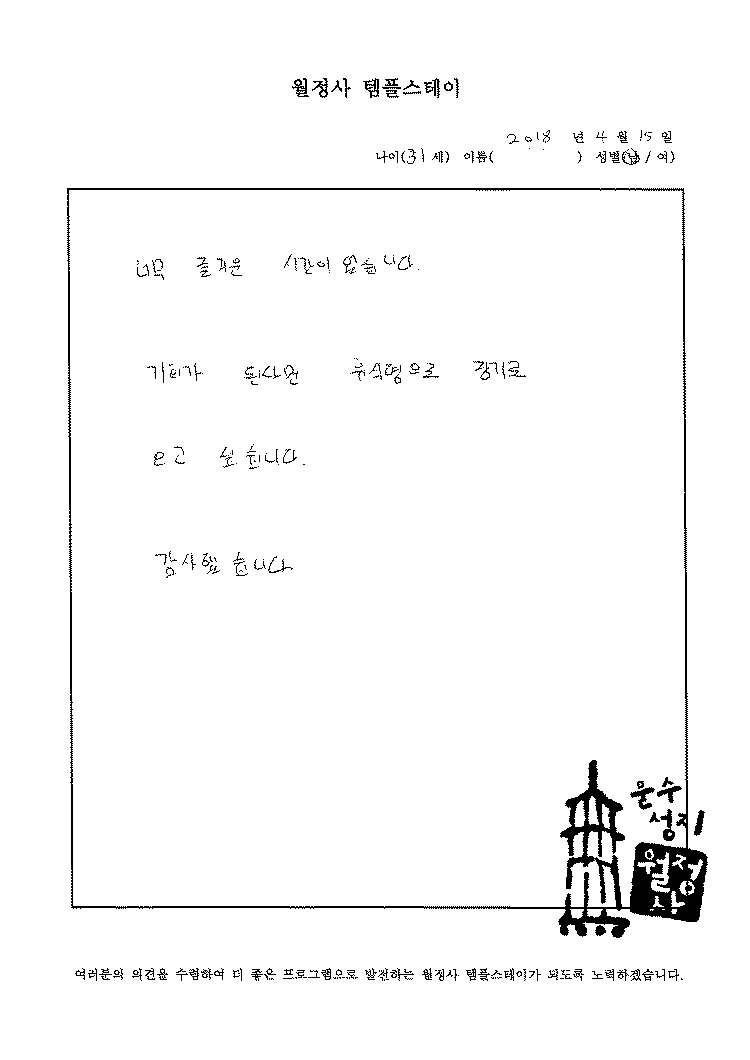 월정사 템플스테이
2018 년 4 월 15 일
나이(31 세) 이름( ) 성별(남 / 여)
너무 즐거운 시간이 었습니다.
기회가 된다면 휴식형으로 장기로
오고 싶습니다.
감사했습니다
문수
성지
월정
사
여러분의 의견을 수렴하여 더 좋은 프로그램으로 발전하는 월정사 템플스테이가 되도록 노력하겠습니다.